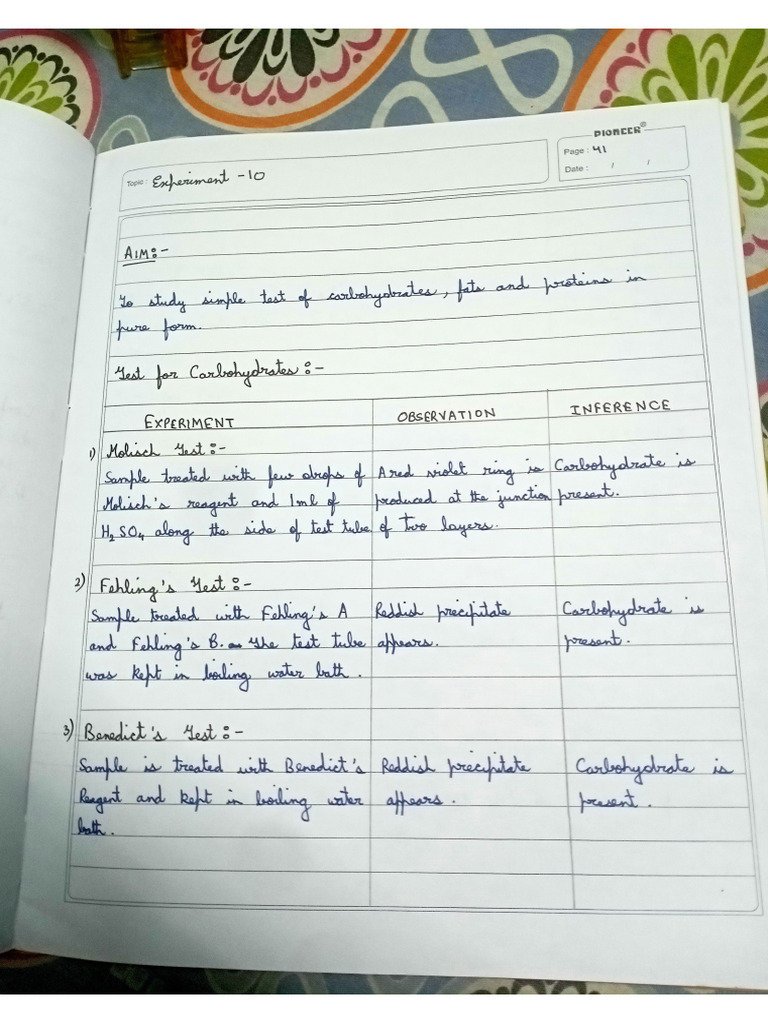 PIONEER®
Topic: Experiment - 10
Page: 41
Date: / /
AIM:-
To study simple test of carbohydrates, fats and proteins in
pure form.
Test for Carbohydrates:-
EXPERIMENT OBSERVATION INFERENCE
1) Molisch Test:-
Sample treated with few drops of A red violet ring is Carbohydrate is
Molisch's reagent and 1ml of produced at the junction present.
H₂SO₄ along the side of test tube of two layers.
2) Fehling's Test:-
Sample treated with Fehling's A Reddish precipitate Carbohydrate is
and Fehling's B. The test tube appears. present.
was kept in boiling water bath.
3) Benedict's Test:-
Sample is treated with Benedict's Reddish precipitate Carbohydrate is
Reagent and kept in boiling water appears. present.
bath.